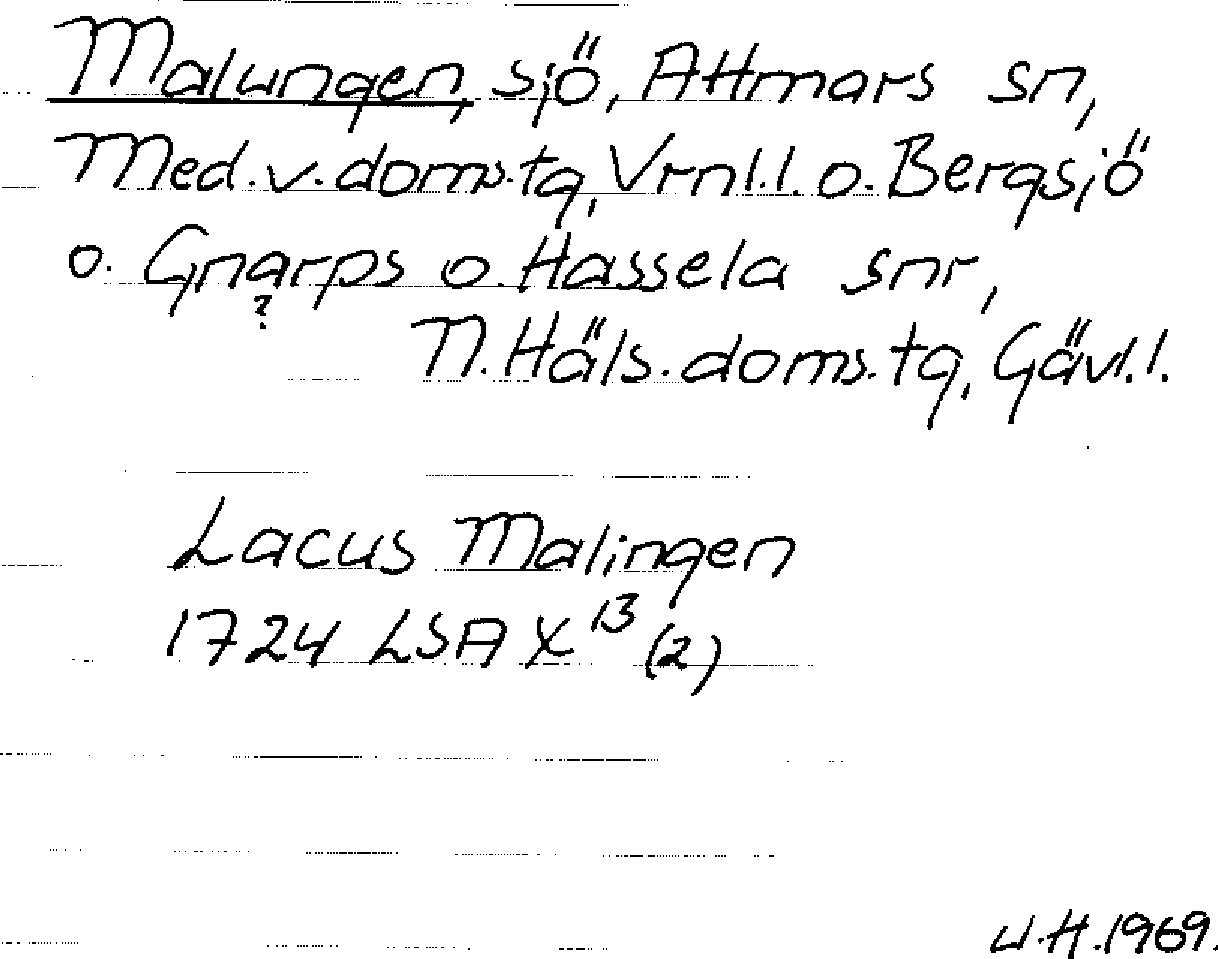 Malungen, sjö, Attmars sn,
Med.v.doms.tg, Vrnl.l. o. Bergsjö
o. Gnarps o. Hassela snr,
?
N. Häls. doms.tg, Gävl.l.
Lacus Malingen
1724 LSA X 13 (2)
U.H. 1969.